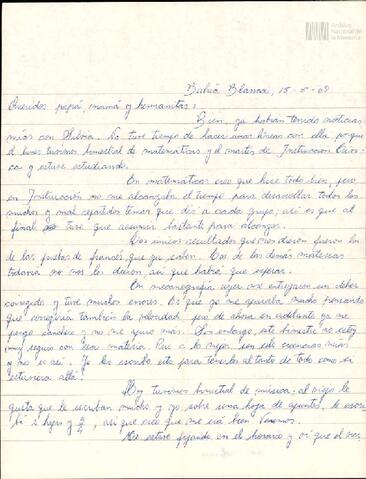 Archivo
Nacional de
la Memoria
Bahía Blanca, 15-5-69
Queridos papá, mamá y hermanitas:
Bien, ya habrán tenido noticias
mías con Silvia. No tuve tiempo de hacer unas líneas con ella porque
el lunes tuvimos bimestral de matemáticas y el martes de Instrucción Cívi-
ca y estuve estudiando.
En matemáticas creo que hice todo bien, pero
en Instrucción no me alcanzaba el tiempo para desarrollar todos los
muchos y mal repartidos temas que dió a cada grupo; así es que al
final tuve que resumir bastante para alcanzar.
Los únicos resultados que nos dieron fueron los
de las pruebas de francés que ya saben. Los de las demás materias
todavía no nos los dieron, así que habrá que esperar.
En mecanografía ayer me entregaron un deber
corregido y tuve muchos errores. Es que yo me apuraba mucho pensando
que corregiría también la velocidad pero de ahora en adelante ya me
pongo y no me apuro más. Sin embargo este bimestre no estoy
muy seguro con esa materia. Pero a lo mejor son ideas mías
y no es así. Yo les escribo esto para tenerlos al tanto de todo como si
estuviera allá.
Hoy tuvimos bimestral de música; al viejo le
gusta que le escriban mucho y yo sobre una hoja de apuntes, le escri-
bí 2 hojas y 3/4, así que creo que me irá bien. Veremos.
Me estuve fijando en el horario y vi que el mar-